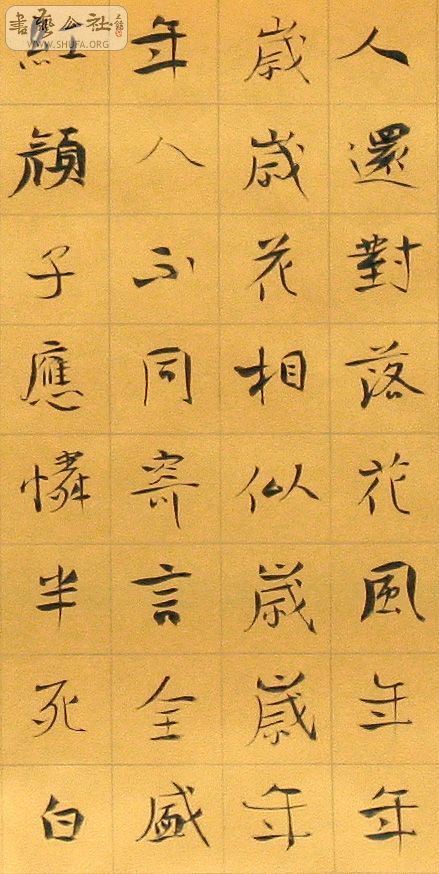 人還對落花風年年
歲歲花相似歲歲年
年人不同寄言全盛
紅顏子應憐半死白
書藝公社
WWW.SHUFA.ORG